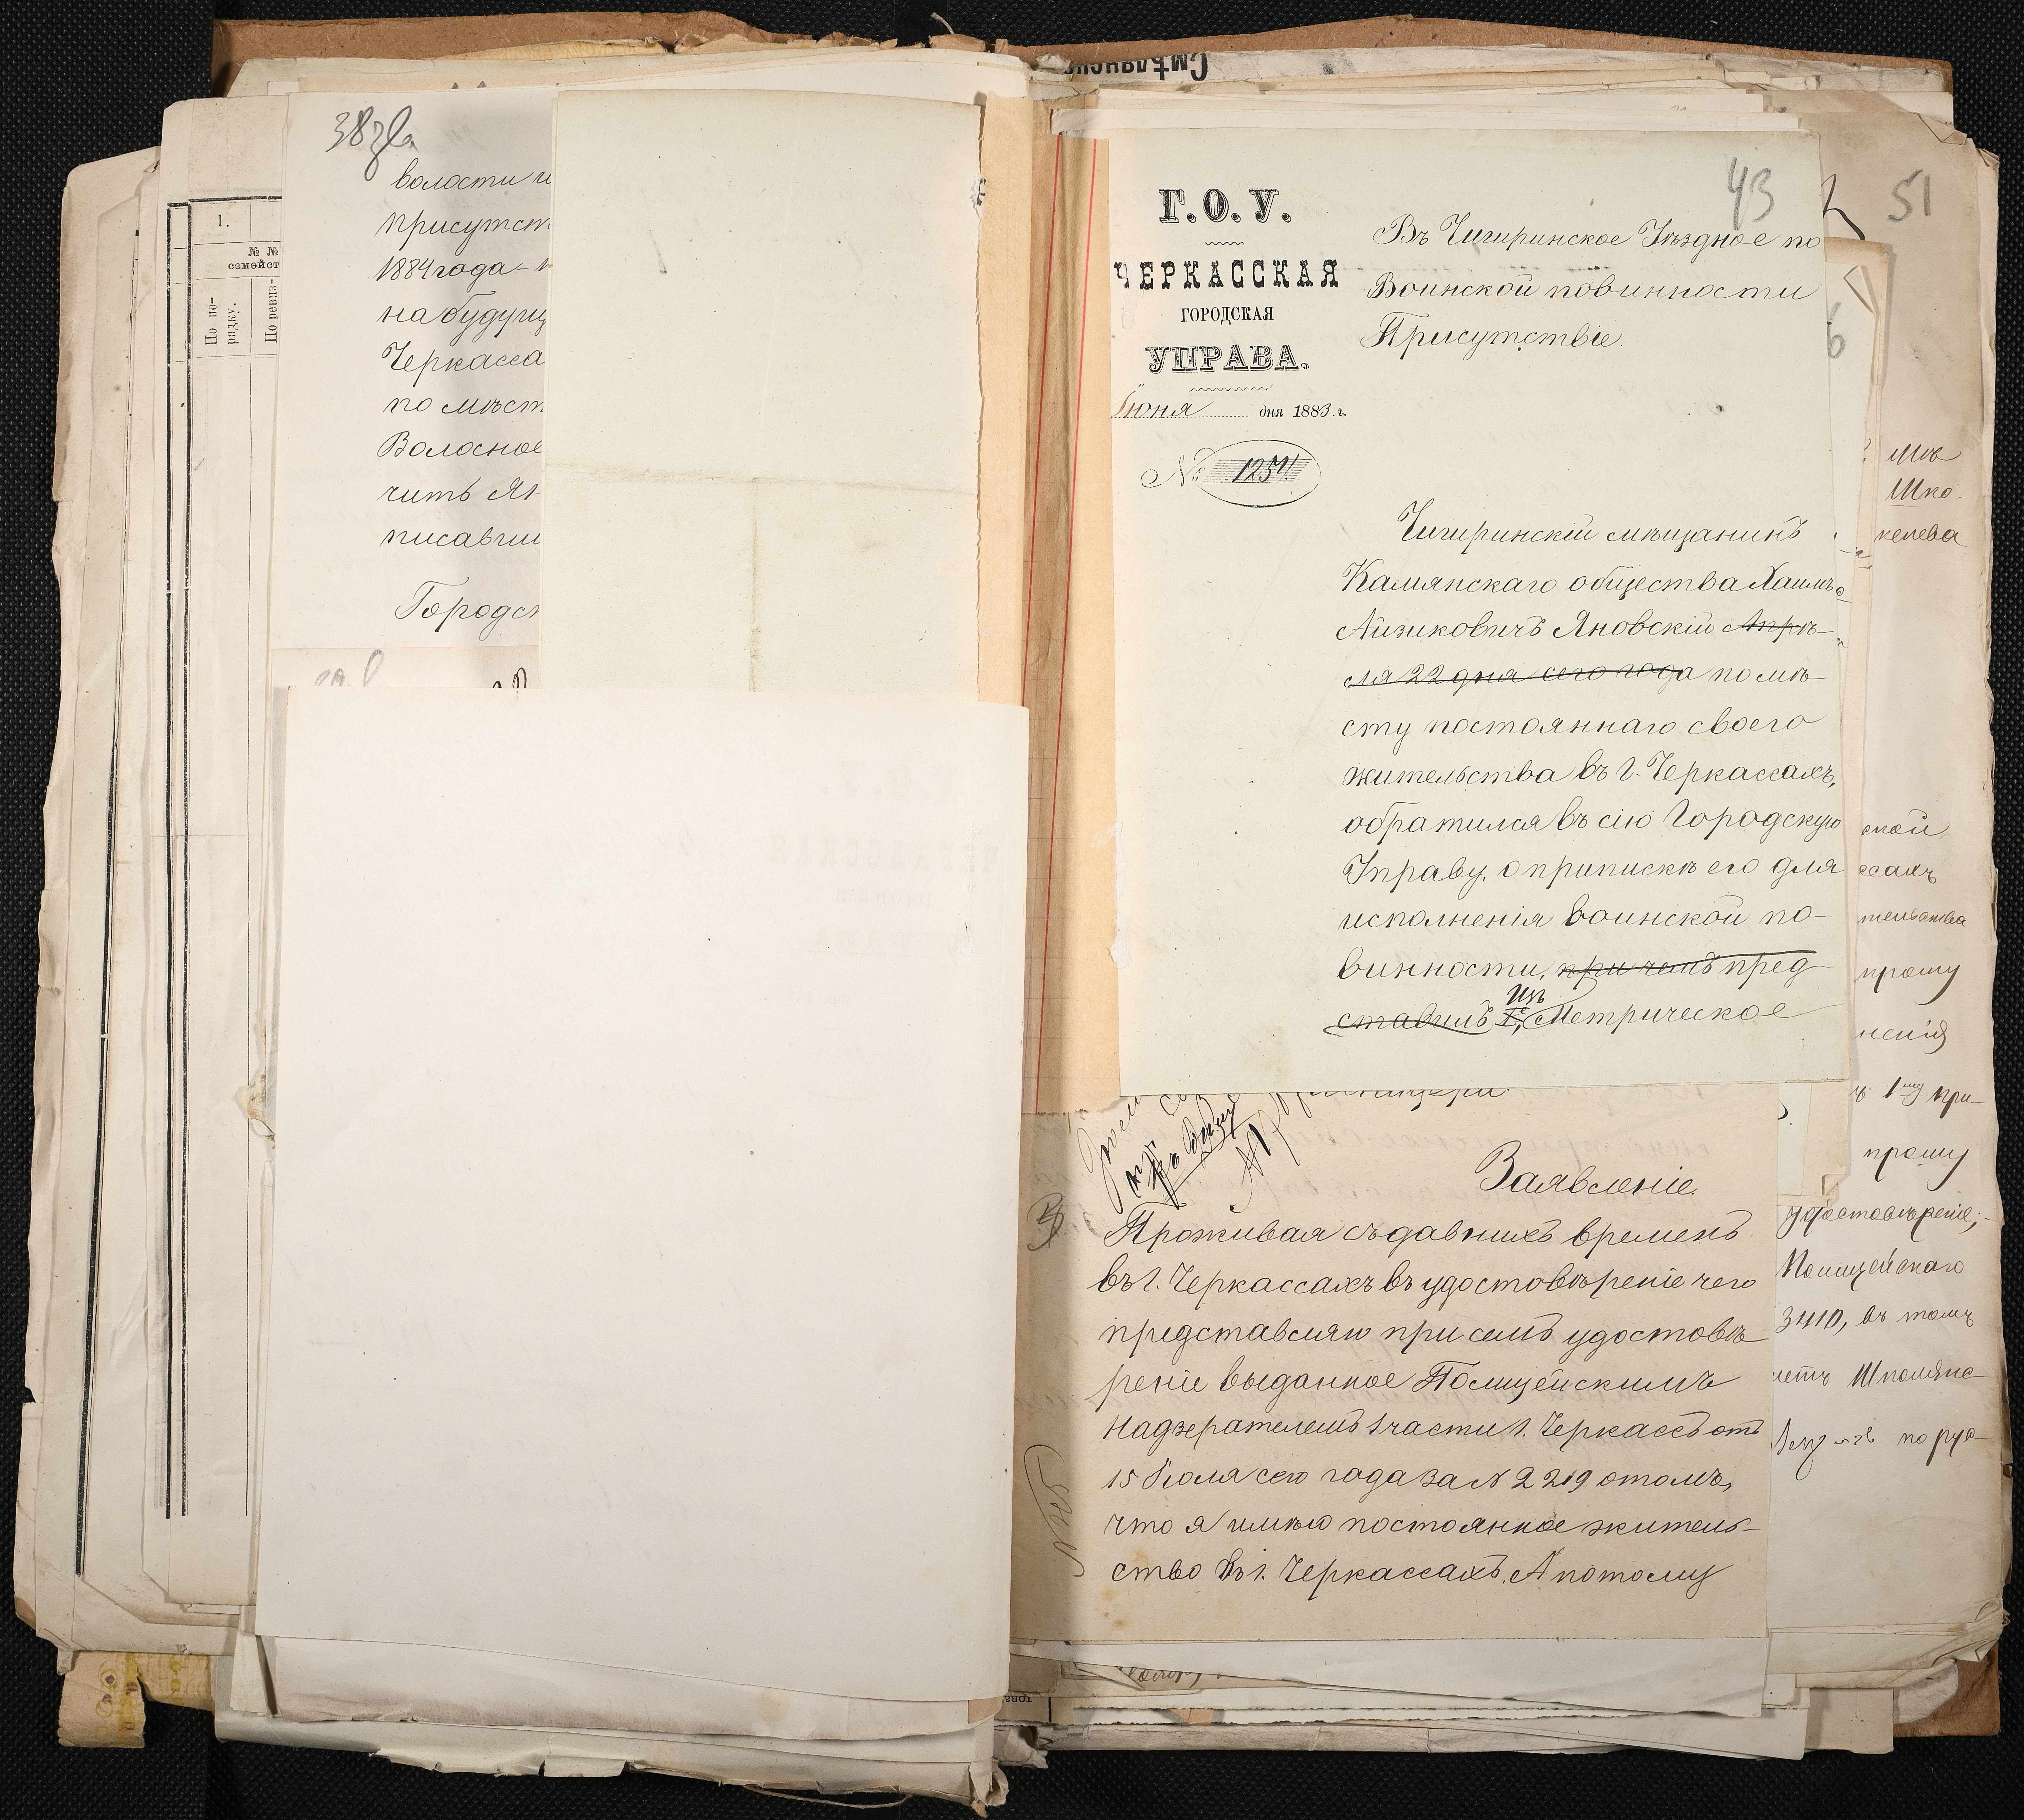 1.
№ №
семейст
По по-
рядку.
По ревиз-
38
волости и
присутст
1884 года - 
на будущ
Черкасса
по мѣст
чить Ян
писавши
Городс
Смѣлянск
43
51
Г.О.У.
ЧЕРКАССКАЯ
ГОРОДСКАЯ
УПРАВА.
Іюня дня 1883 г.
№ 1254.
Въ Чигиринское Уѣздное по
Воинской повинности
Присутствіе.
Чигиринскій мѣщанинъ
Камянскаго общества Хаимъ
Айзиковичъ Яновскій Апрѣ-
ля 22 дня сего года по мѣ-
сту постояннаго своего
жительства въ г. Черкассахъ,
обратился въ сію Городскую
Управу, о припискѣ его для
исполненія воинской по-
винности, при чемъ пред
ставилъ Изъ Метрическое
Заявленіе.
Проживая съ давнихъ временъ
въ г. Черкассахъ въ удостовѣреніе чего
представляю при семъ удостовѣ-
реніе выданное Полицейскимъ
Надзерателемъ 1 части г. Черкассъ отъ
15 Іюля сего года за № 2219 о томъ,
что я имѣю постоянное житель-
ство въ г. Черкассахъ. А потому
Шпо-
келева
ской
ссахъ
тельства
прошу
1 при-
прошу
удостовѣреніе;
Полицейскаго
3410, въ томъ
Шполянс
по рус-